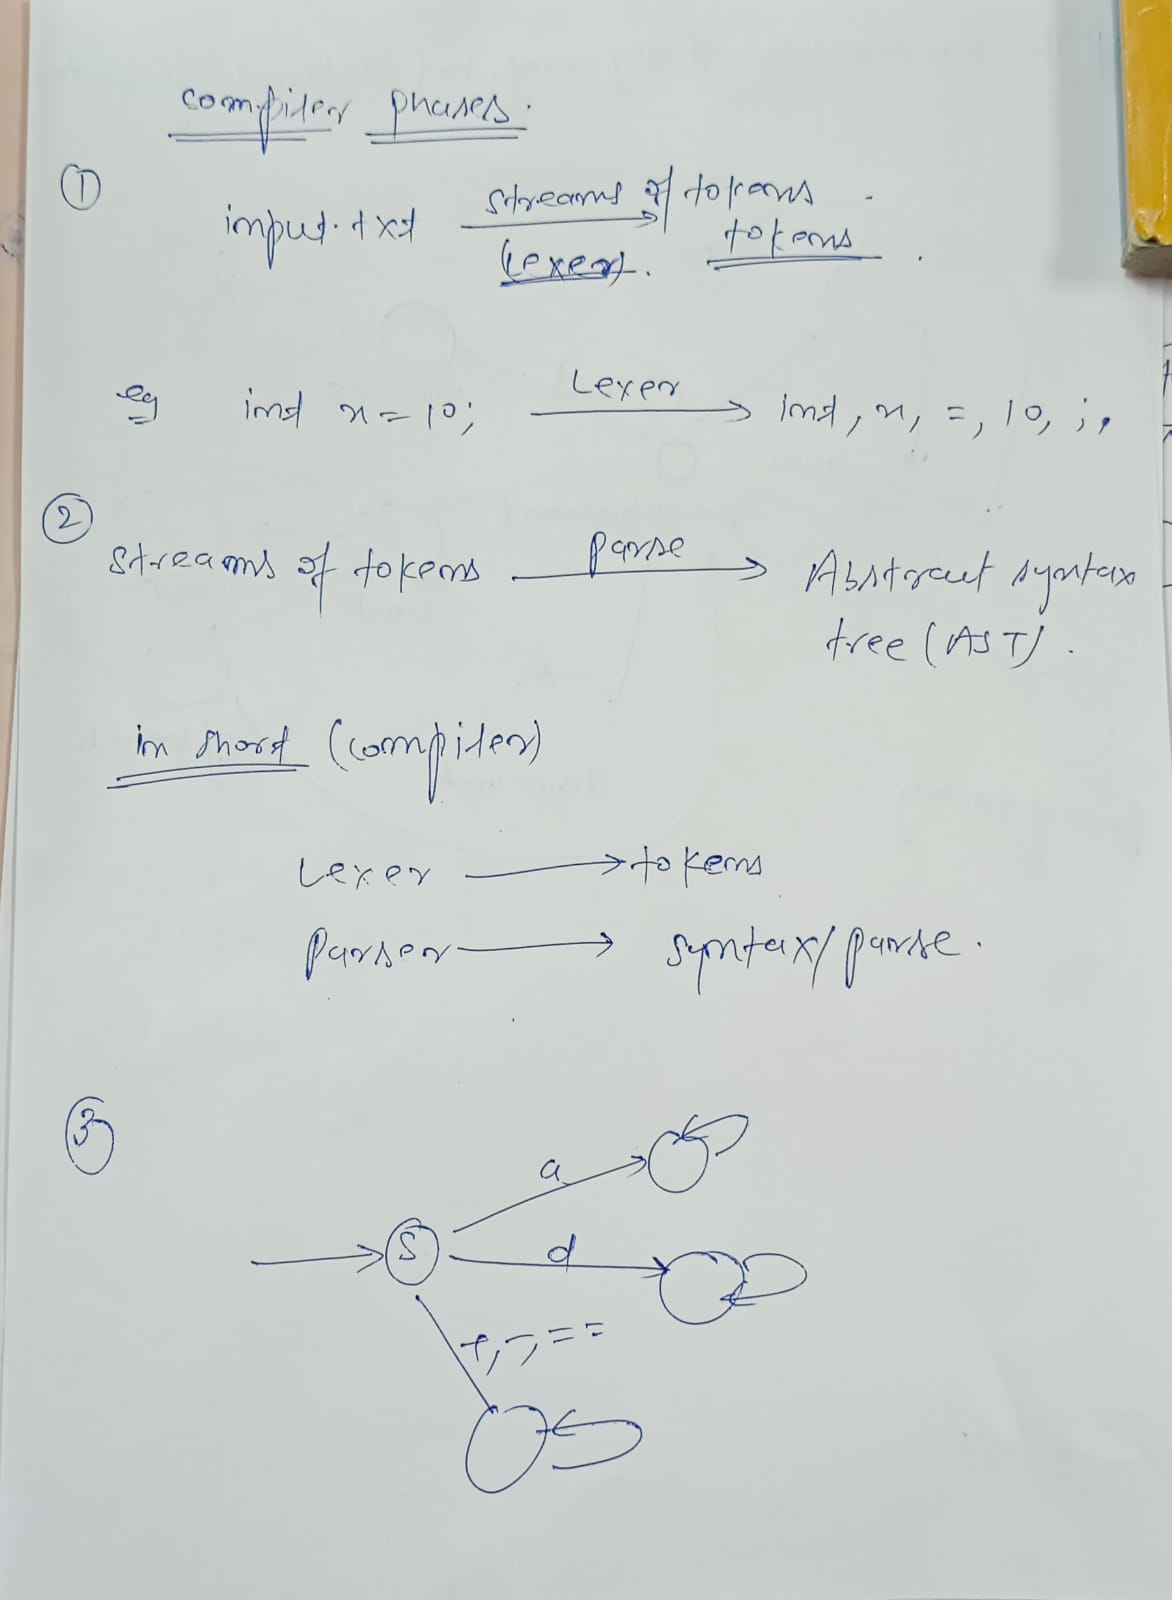 compiler phases.
①
input.txt streams of tokens
(Lexer). tokens
eg int x = 10; Lexer int, x, =, 10, ;,
②
streams of tokens parse Abstract syntax
tree (AST).
in short (compiler)
Lexer → tokens
Parser → syntax/parse.
③
a
S
d
+, -, = =